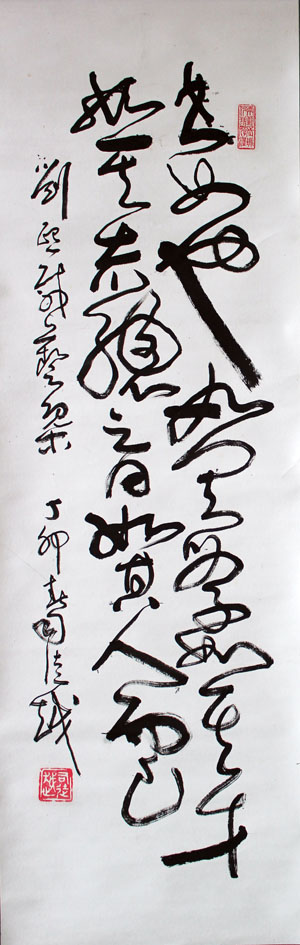 書如也如其學如其才
如其志總之曰如其人而已
劉熙載藝槩 丁卯春司徒越